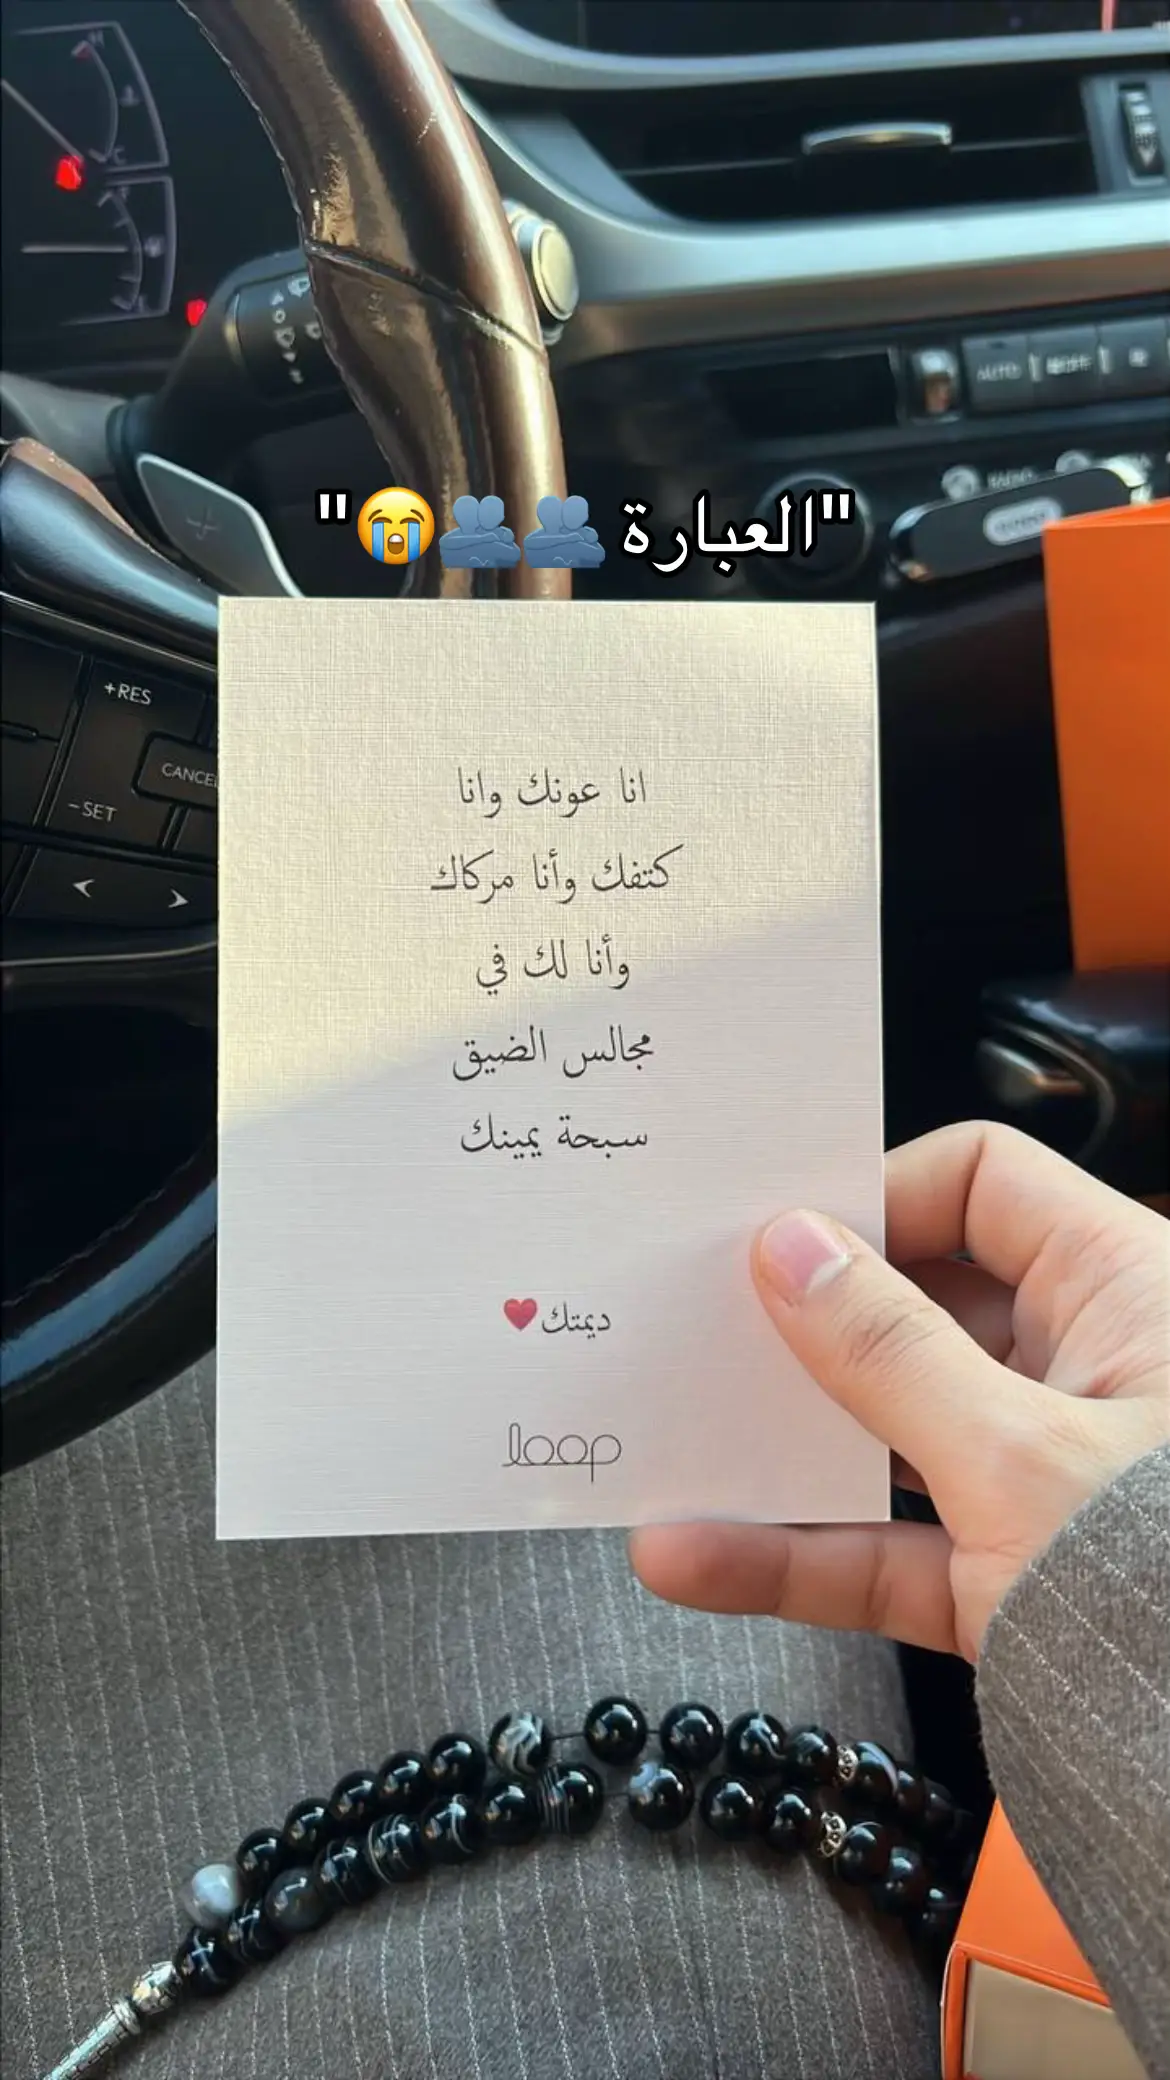 "العبارة 🫂🫂😭"
AUTO
+RES
CANCEL
-SET
انا عونك وانا
كتفك وأنا مركاك
وأنا لك في
مجالس الضيق
سبحة يمينك
ديمتك❤️
loop